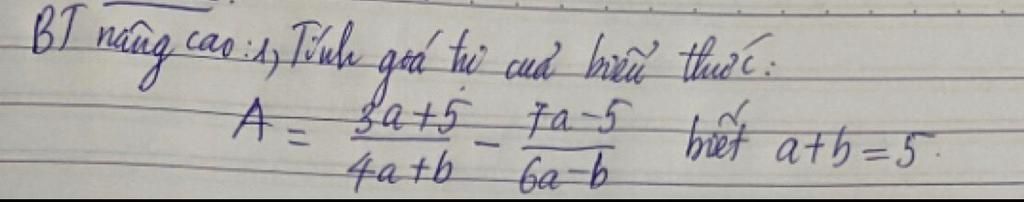 BT nâng cao: 1, Tính giá trị của biểu thức:
A = \frac{3a+5}{4a+b} - \frac{7a-5}{6a-b} biết a+b=5.